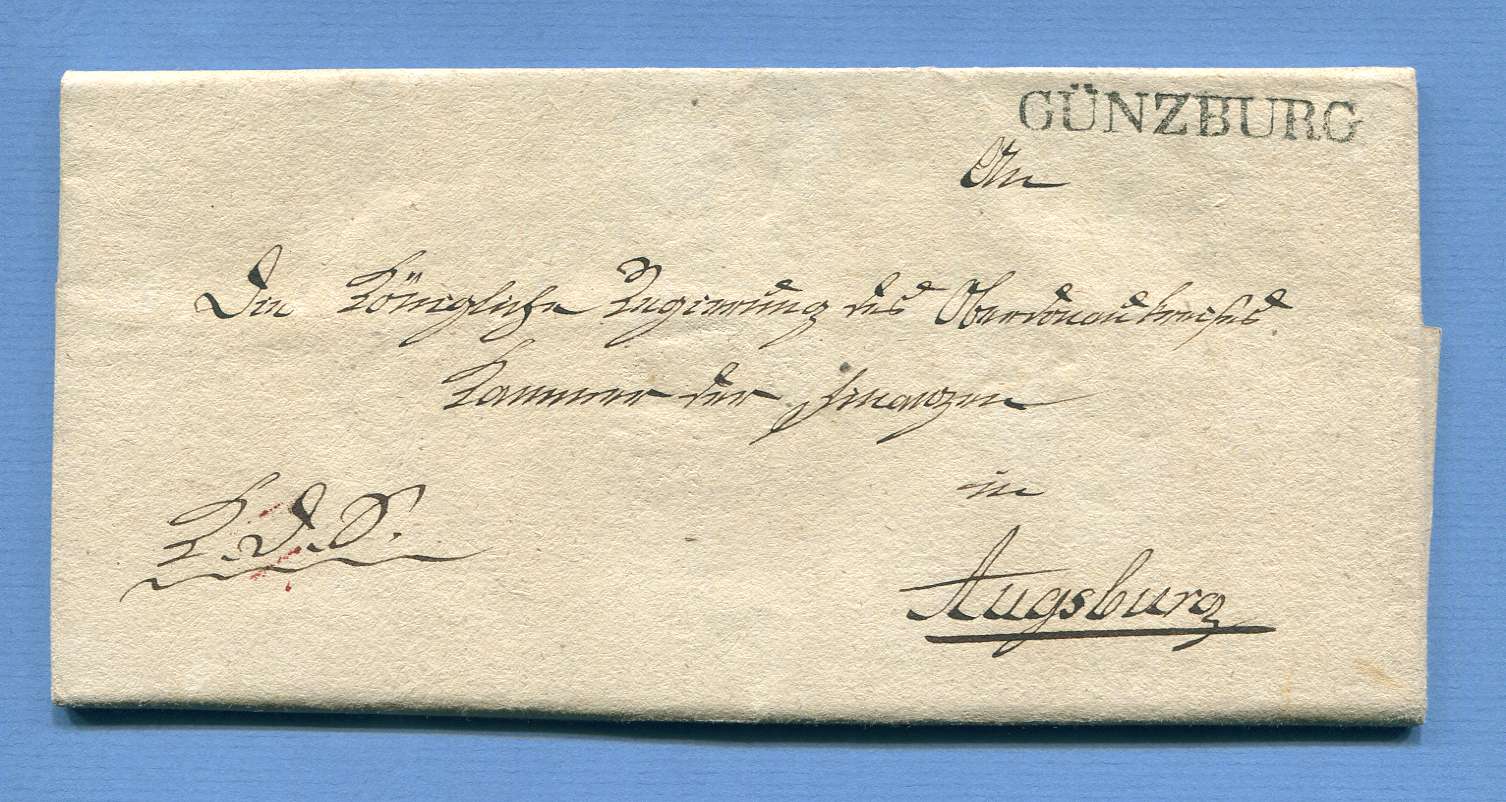 GÜNZBURG
An
Die Königliche Regierung des Oberdonaukreises
Kammer der Finanzen
in
K. D. S.
Augsburg